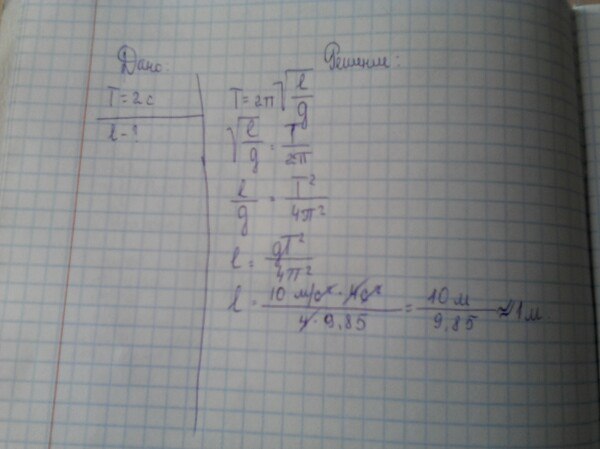 Дано:
T=2c
l-?
Решение:
T=2π√(l/g)
√(l/g) = T/2π
l/g = T²/4π²
l = gT²/4π²
l = 10 м/с²·4с²/4·9,85 = 10м/9,85 ≈ 1м.